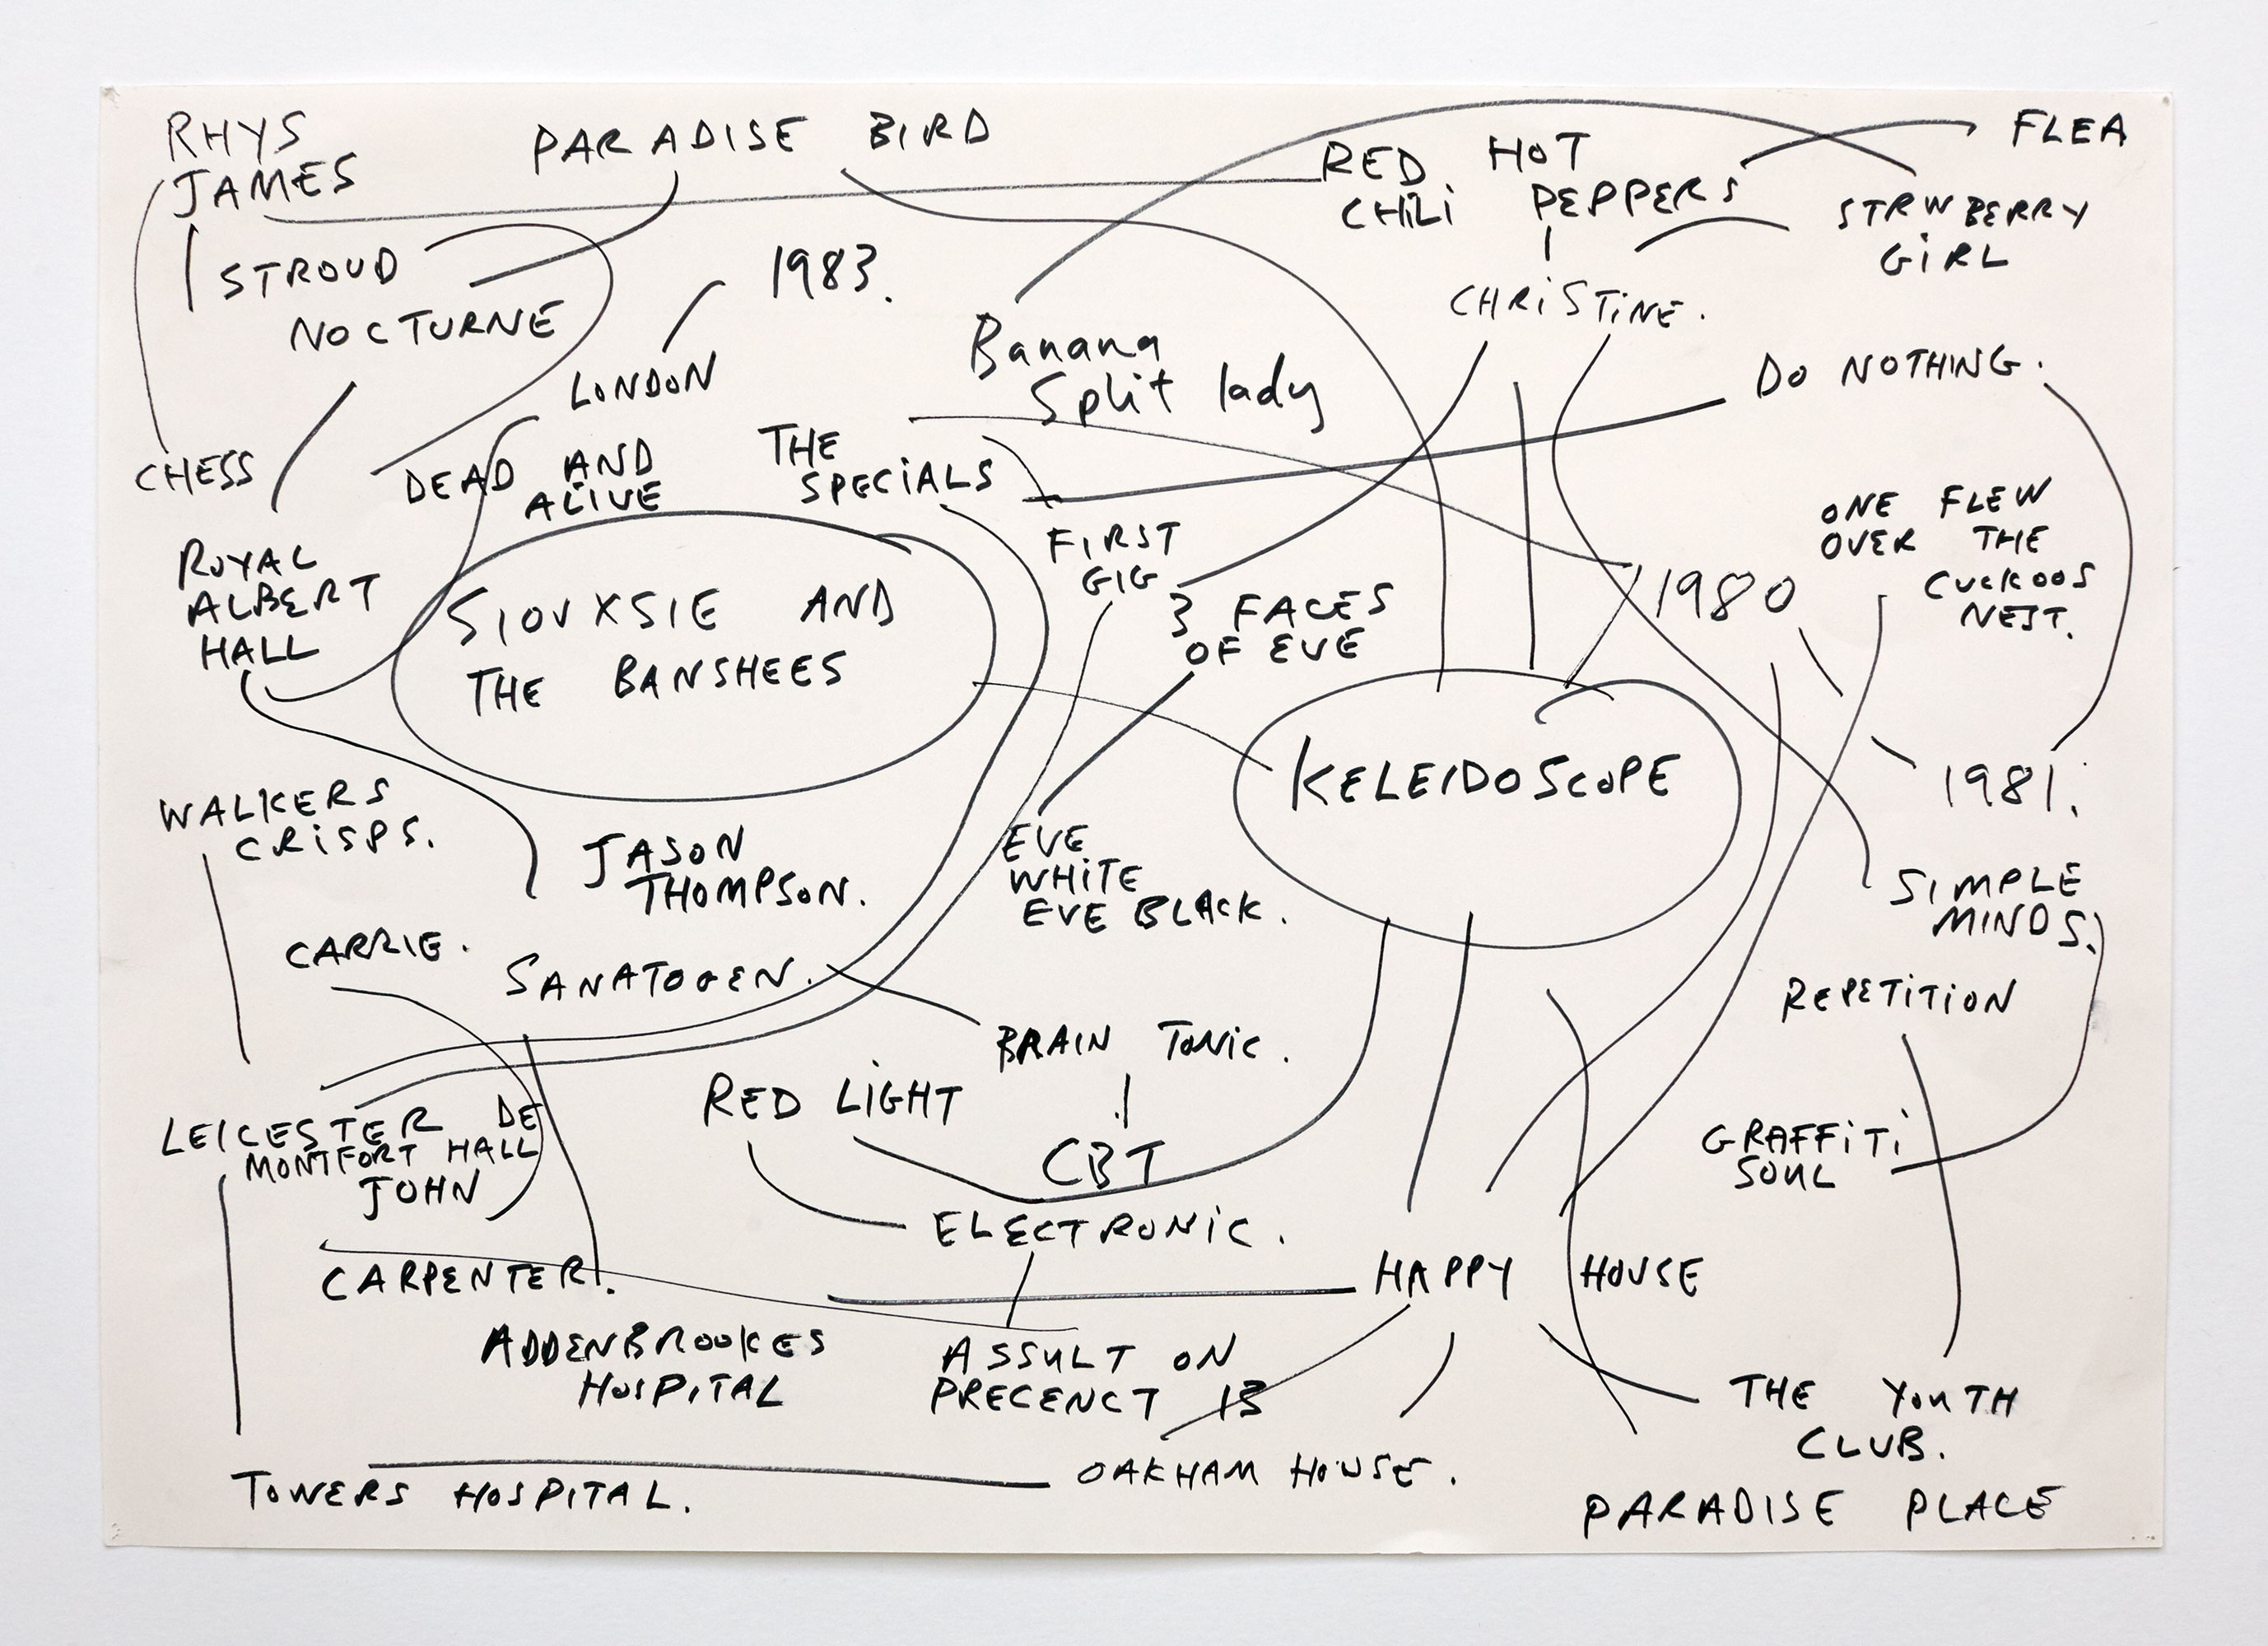 RHYS
JAMES
PARADISE BIRD
RED HOT
CHiLi PEPPERS
FLEA
STRWBERRY
GiRL
STROUD
NOCTURNE
1983.
LONDON
CHRiSTiNE.
Banana
Split lady
DO NOTHING.
CHESS
DEAD AND
ALIVE
THE
SPECiALS
FIRST
GIG
ONE FLEW
OVER THE
CUCKOOS
NEST.
ROYAL
ALBERT
HALL
SIOUXSIE AND
THE BANSHEES
3 FACES
OF EVE
1980
KELEIDOSCOPE
1981.
WALKERS
CRiSPS.
JASON
THOMPSON.
EVE
WHiTE
EVE BLACK.
SIMPLE
MINDS.
CARRIE.
SANATOGEN.
BRAIN TONIC.
REPETiTiON
RED LiGHT
CBT
LEICESTER DE
MONTFORT HALL
JOHN
CARPENTER.
GRAFFiTi
SOUL
ELECTRONiC.
HAPPY HOUSE
ADDENBROOKES
HOSPITAL
ASSULT ON
PRECENCT 13
THE YOUTH
CLUB.
TOWERS HOSPITAL.
OAKHAM HOUSE.
PARADISE PLACE